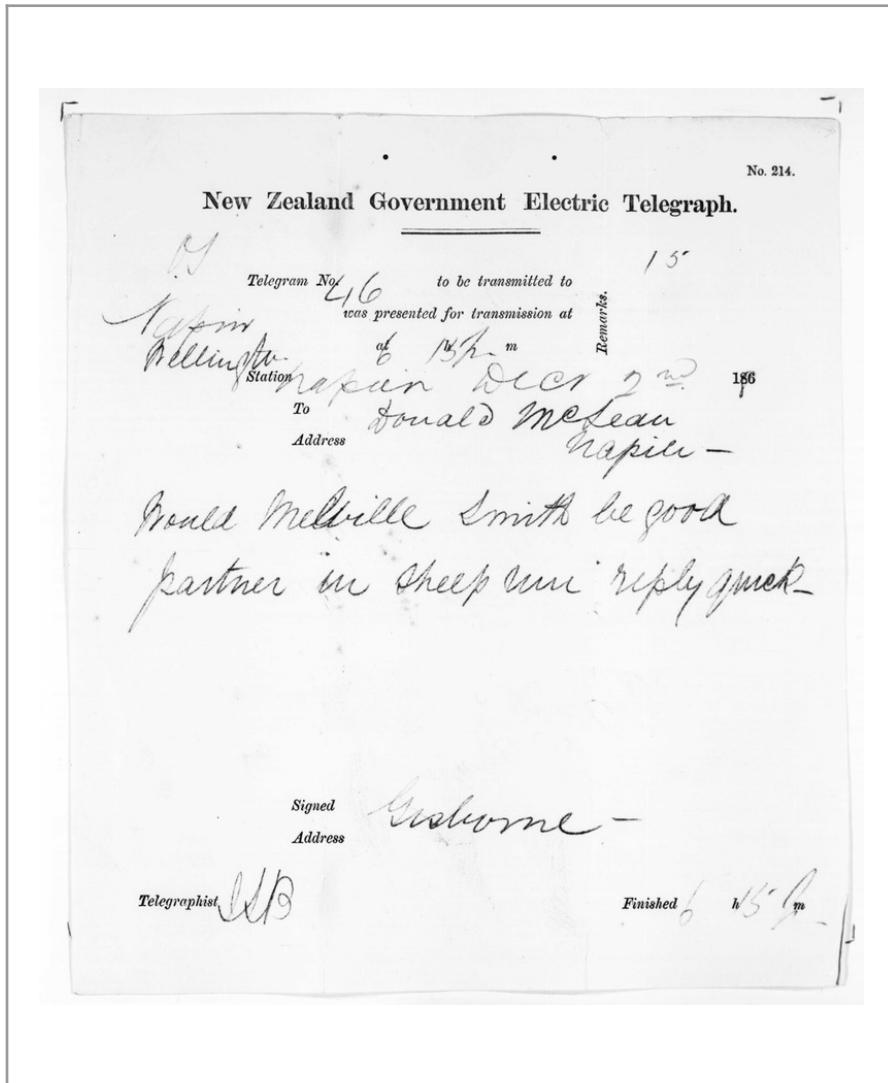 No. 214.
New Zealand Government Electric Telegraph.
OS
15
Telegram No. 46 to be transmitted to
Napier
was presented for transmission at
Remarks.
Wellington at 6 h 15 p m
Station Napier Decr 2nd 186
To Donald McLean
Address Napier —
Would Melville Smith be good
partner in sheep run reply quick —
Signed Gisborne —
Address
Telegraphist
Finished 6 h 15 p m